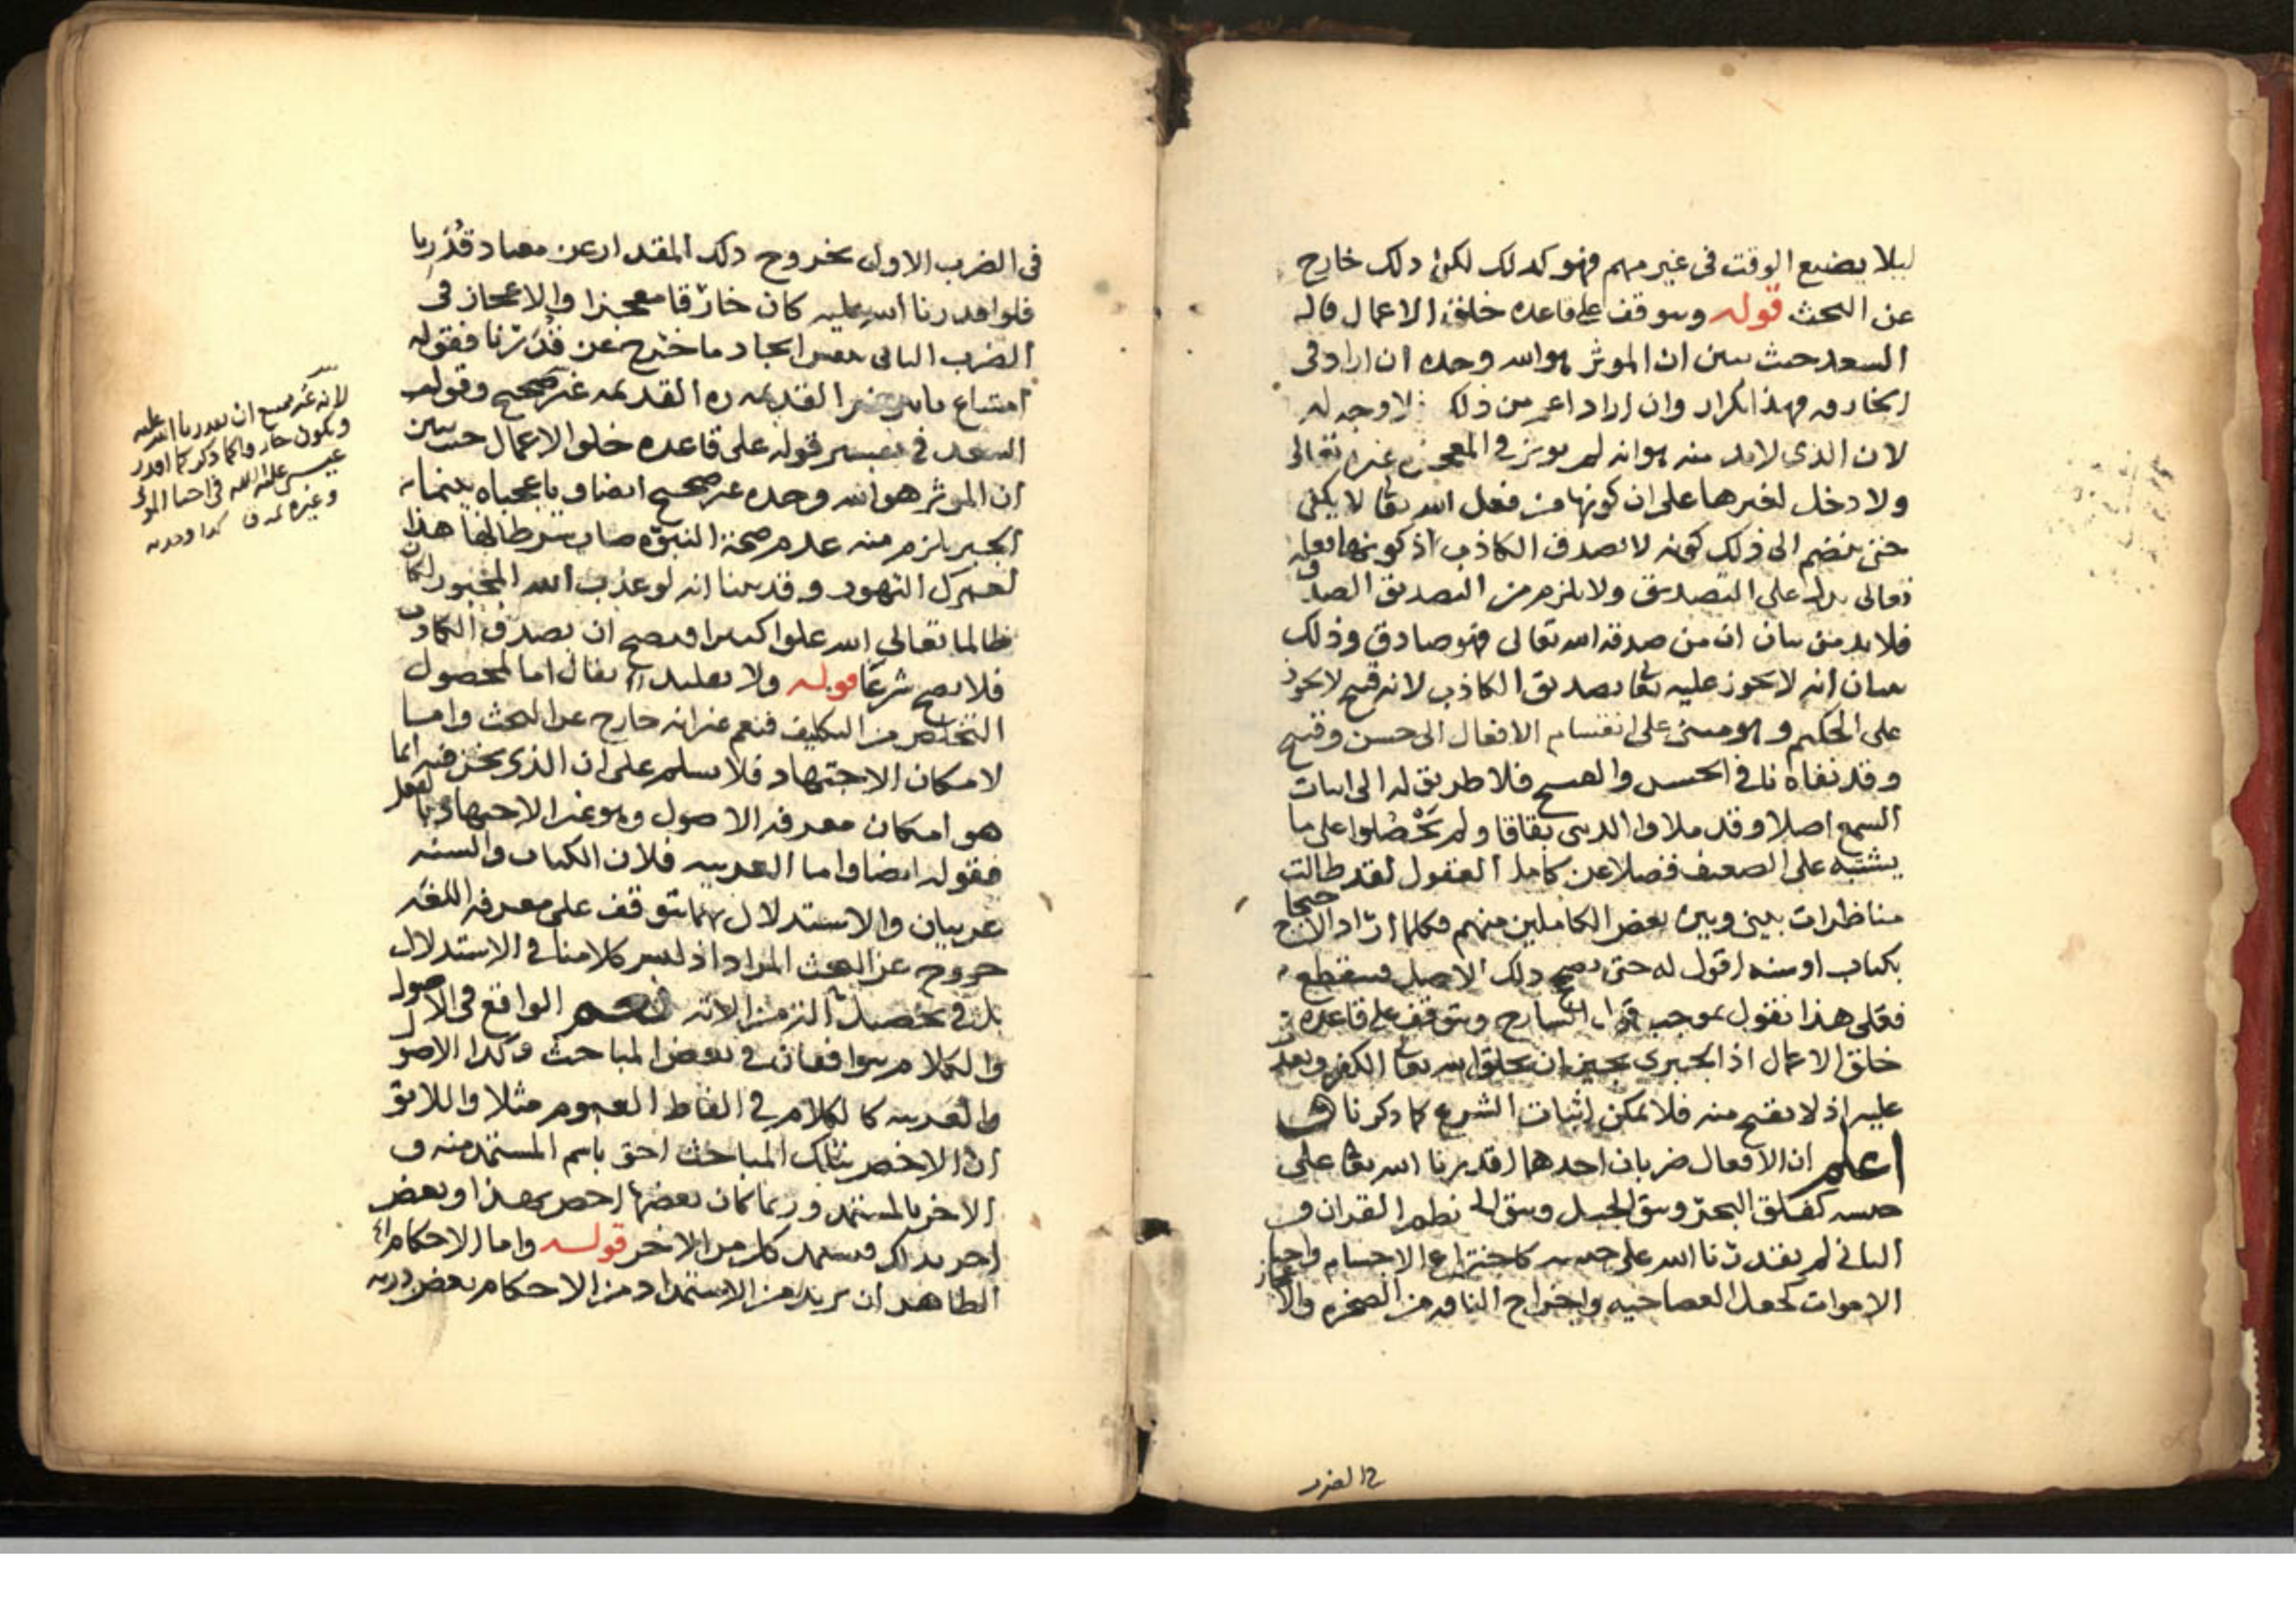 ليلا يضيع الوقت في غير مهم فهو كذلك لكن ذلك خارج
عن البحث قوله ويتوقف على قاعدة خلق الاعمال قال
السعد حيث يبين ان الموثر هو الله وحده ان اراد في
الخارق فهذا تكرار وان اراد اعم من ذلك لا وجه له
لان الذي لابد منه هو انه لم يوثر في المعجزة غيره تعالى
ولا دخل لغيرها على ان كونها من فعل الله تعا لا يكفي
حتى ينضم الى ذلك كونه لا يصدق الكاذب اذ كونها فعله
تعالى يدل على التصديق ولا يلزم من التصديق الصدق
فلا بد من بيان ان من صدقه الله تعالى فهو صادق وذلك
بيان انه لا يجوز عليه تعا تصديق الكاذب لانه قبيح لا يجوز
على الحكيم وهو مبني على انقسام الافعال الى حسن وقبيح
وقد نفاه نافي الحسن والقبح فلا طريق له الى اثبات
السمع اصلا وقد ملاوا الدنيا بقاقا ولم يحصلوا على ما
يشتبه على الضعيف فضلا عن كامل العقول لقد طالت
مناظرات بيني وبين بعض الكاملين منهم فكلما اراد الاحتجاج
بكتاب او سنه اقول له حتى يصح ذلك الاصل فينقطع
فعلى هذا نقول بموجب قول الشارح ويتوقف على قاعدة
خلق الاعمال اذ الجبري يجيز ان يخلق الله تعا الكفر ويعذب
عليه اذ لا يقبح منه فلا يمكن اثبات الشرع كما ذكرنا
اعلم ان الافعال ضربان احدهما اقدرنا الله تعا على
جنسه كفلق البحر ونتق الجبل نظم القران و
الثاني لم يقدرنا الله على جنسه كاختراع الاجسام واحيا
الاموات كجعل العصا حيه واخراج الناقه من الصخره والاعجاز
في الضرب
في الضرب الاول بخروج ذلك المقدار عن معتاد قدرنا
فلو اقدرنا الله عليه كان خارقا معجزا والاعجاز في
الضرب الثاني نفس ايجاد ما خرج عن قدرتنا فقوله
امتناع تاثير غير القدره القديمه غير صحيح وقوله
السعد في تفسير قوله على قاعدة خلق الاعمال حيث يبين
ان الموثر هو الله وحده غير صحيح ايضا ويا عجباه بينما
الجبر يلزم منه عدم صحة النبوه صار شرطا لها هذا
لعمرك التهور وقد بينا انه لو عذب الله المجبور لكان
ظالما تعالى الله علوا كبيرا فيصح ان يصدق الكاذب
فلا يصح شرعا قوله ولا تقليد يقال اما لحصول
التخلص من التكليف فنعم غير انه خارج عن البحث واما
لامكان الاجتهاد فلا نسلم على ان الذي نحن فيه انما
هو امكان معرفه الاصول وهو غير الاجتهاد بالفعل
فقوله ايضا واما العربيه فلان الكتاب والسنه
عربيان والاستدلال بهما يتوقف على معرفه اللغه
خروج عن البحث المراد اذ ليس كلامنا في الاستدلال
بل في تحصيل نعم الواقع في الاصول
والكلام متوافقان في بعض المباحث وكذا الاصول
والعربيه كالكلام في الفاظ العموم مثلا واللائق
ان الاخص بتلك المباحث احق باسم المستمد منه و
الاخر بالمستمد وربما كان بعضها اخص بهذا وبعض
اخر بذاك فيستمد كل من الاخر قوله واما الاحكام
الظاهر ان يريد من الاستمداد من الاحكام بعض
لانه غير ممتنع ان يقدرنا الله عليه
ويكون خارقا كما ذكر كما اقدر
عيسى عليه السلم في احيا الموتى
وغيره